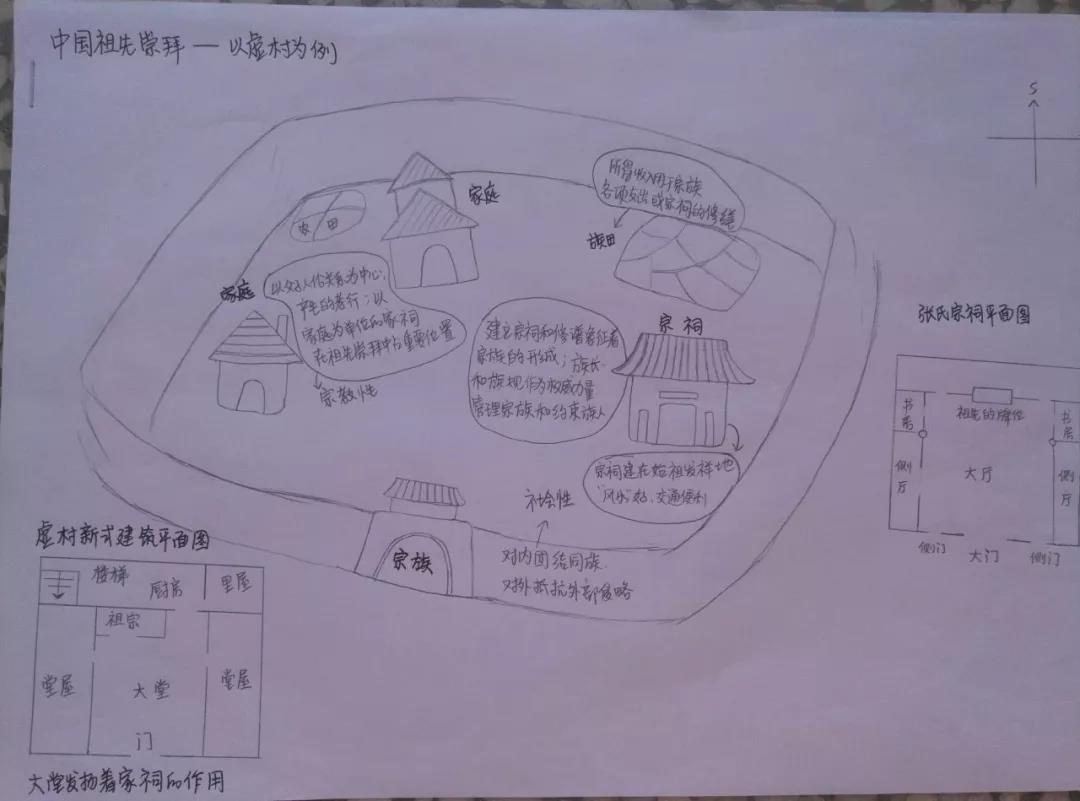 中国祖先崇拜 — 以虚村为例
S
家庭
农田
所得收入用于宗族
各项支出或宗祠的修缮
族田
家庭
以父子人伦关系为中心,
孝的善行;以
家庭为单位的家祠
在祖先崇拜中占重要位置
宗教性
建立宗祠和修谱象征着
家族的形成;族长
和族规作为权威力量
管理家族和约束族人
宗祠
宗祠建在始祖发祥地
"风水"好,交通便利
社会性
对内团结同族
对外抵抗外部侵略
宗族
张氏宗祠平面图
书房
祖先的牌位
书房
侧厅
大厅
侧厅
侧门
大门
侧门
虚村新式建筑平面图
楼梯
厨房
里屋
祖宗
堂屋
大堂
堂屋
门
大堂发扬着家祠的作用